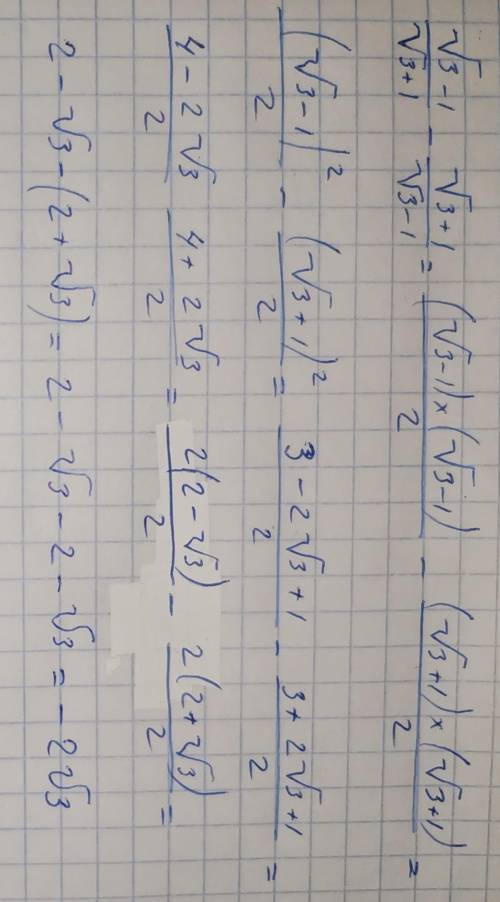 (√3 - 1)/(√3 + 1) - (√3 + 1)/(√3 - 1) = ((√3 - 1) × (√3 - 1))/2 - ((√3 + 1) × (√3 + 1))/2 =
(√3 - 1)²/2 - (√3 + 1)²/2 = (3 - 2√3 + 1)/2 - (3 + 2√3 + 1)/2 =
(4 - 2√3)/2 (4 + 2√3)/2 = 2(2 - √3)/2 - 2(2 + √3)/2 =
2 - √3 - (2 + √3) = 2 - √3 - 2 - √3 = - 2√3